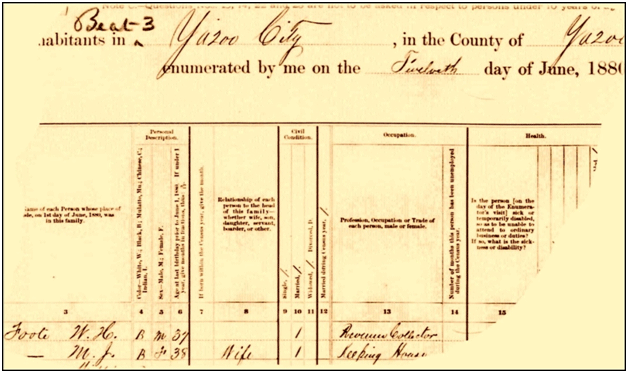 Note C.—Questions Nos. 13, 14, 22 and 23 are not to be asked in respect to persons under 10 years of
Beat-3
habitants in Yazoo City, in the County of Yazoo
enumerated by me on the Twelvth day of June, 1880
Personal Description.
Civil Condition.
Occupation.
Health.
Name of each Person whose place of
abode, on 1st day of June, 1880, was
in this family.
Color—White, W.; Black, B.; Mulatto, Mu.; Chinese, C.; Indian, I.
Sex—Male, M.; Female, F.
Age at last birthday prior to June 1, 1880. If under 1 year, give months in fractions, thus
If born within the Census year, give the month.
Relationship of each
person to the head
of this family—
whether wife, son,
daughter, servant,
boarder, or other.
Single, /
Married, /
Widowed, / Divorced, D.
Married during Census year, /
Profession, Occupation or Trade of
each person, male or female.
Number of months this person has been unemployed during the Census year.
Is the person [on the
day of the Enumera-
tor's visit] sick or
temporarily disabled,
so as to be unable to
attend to ordinary
business or duties?
If so, what is the sick-
ness or disability?
3 4 5 6 7 8 9 10 11 12 13 14 15
Foote W. H. B M 37 1 Revenue Collector
— M. J. B F 38 Wife 1 Keeping House